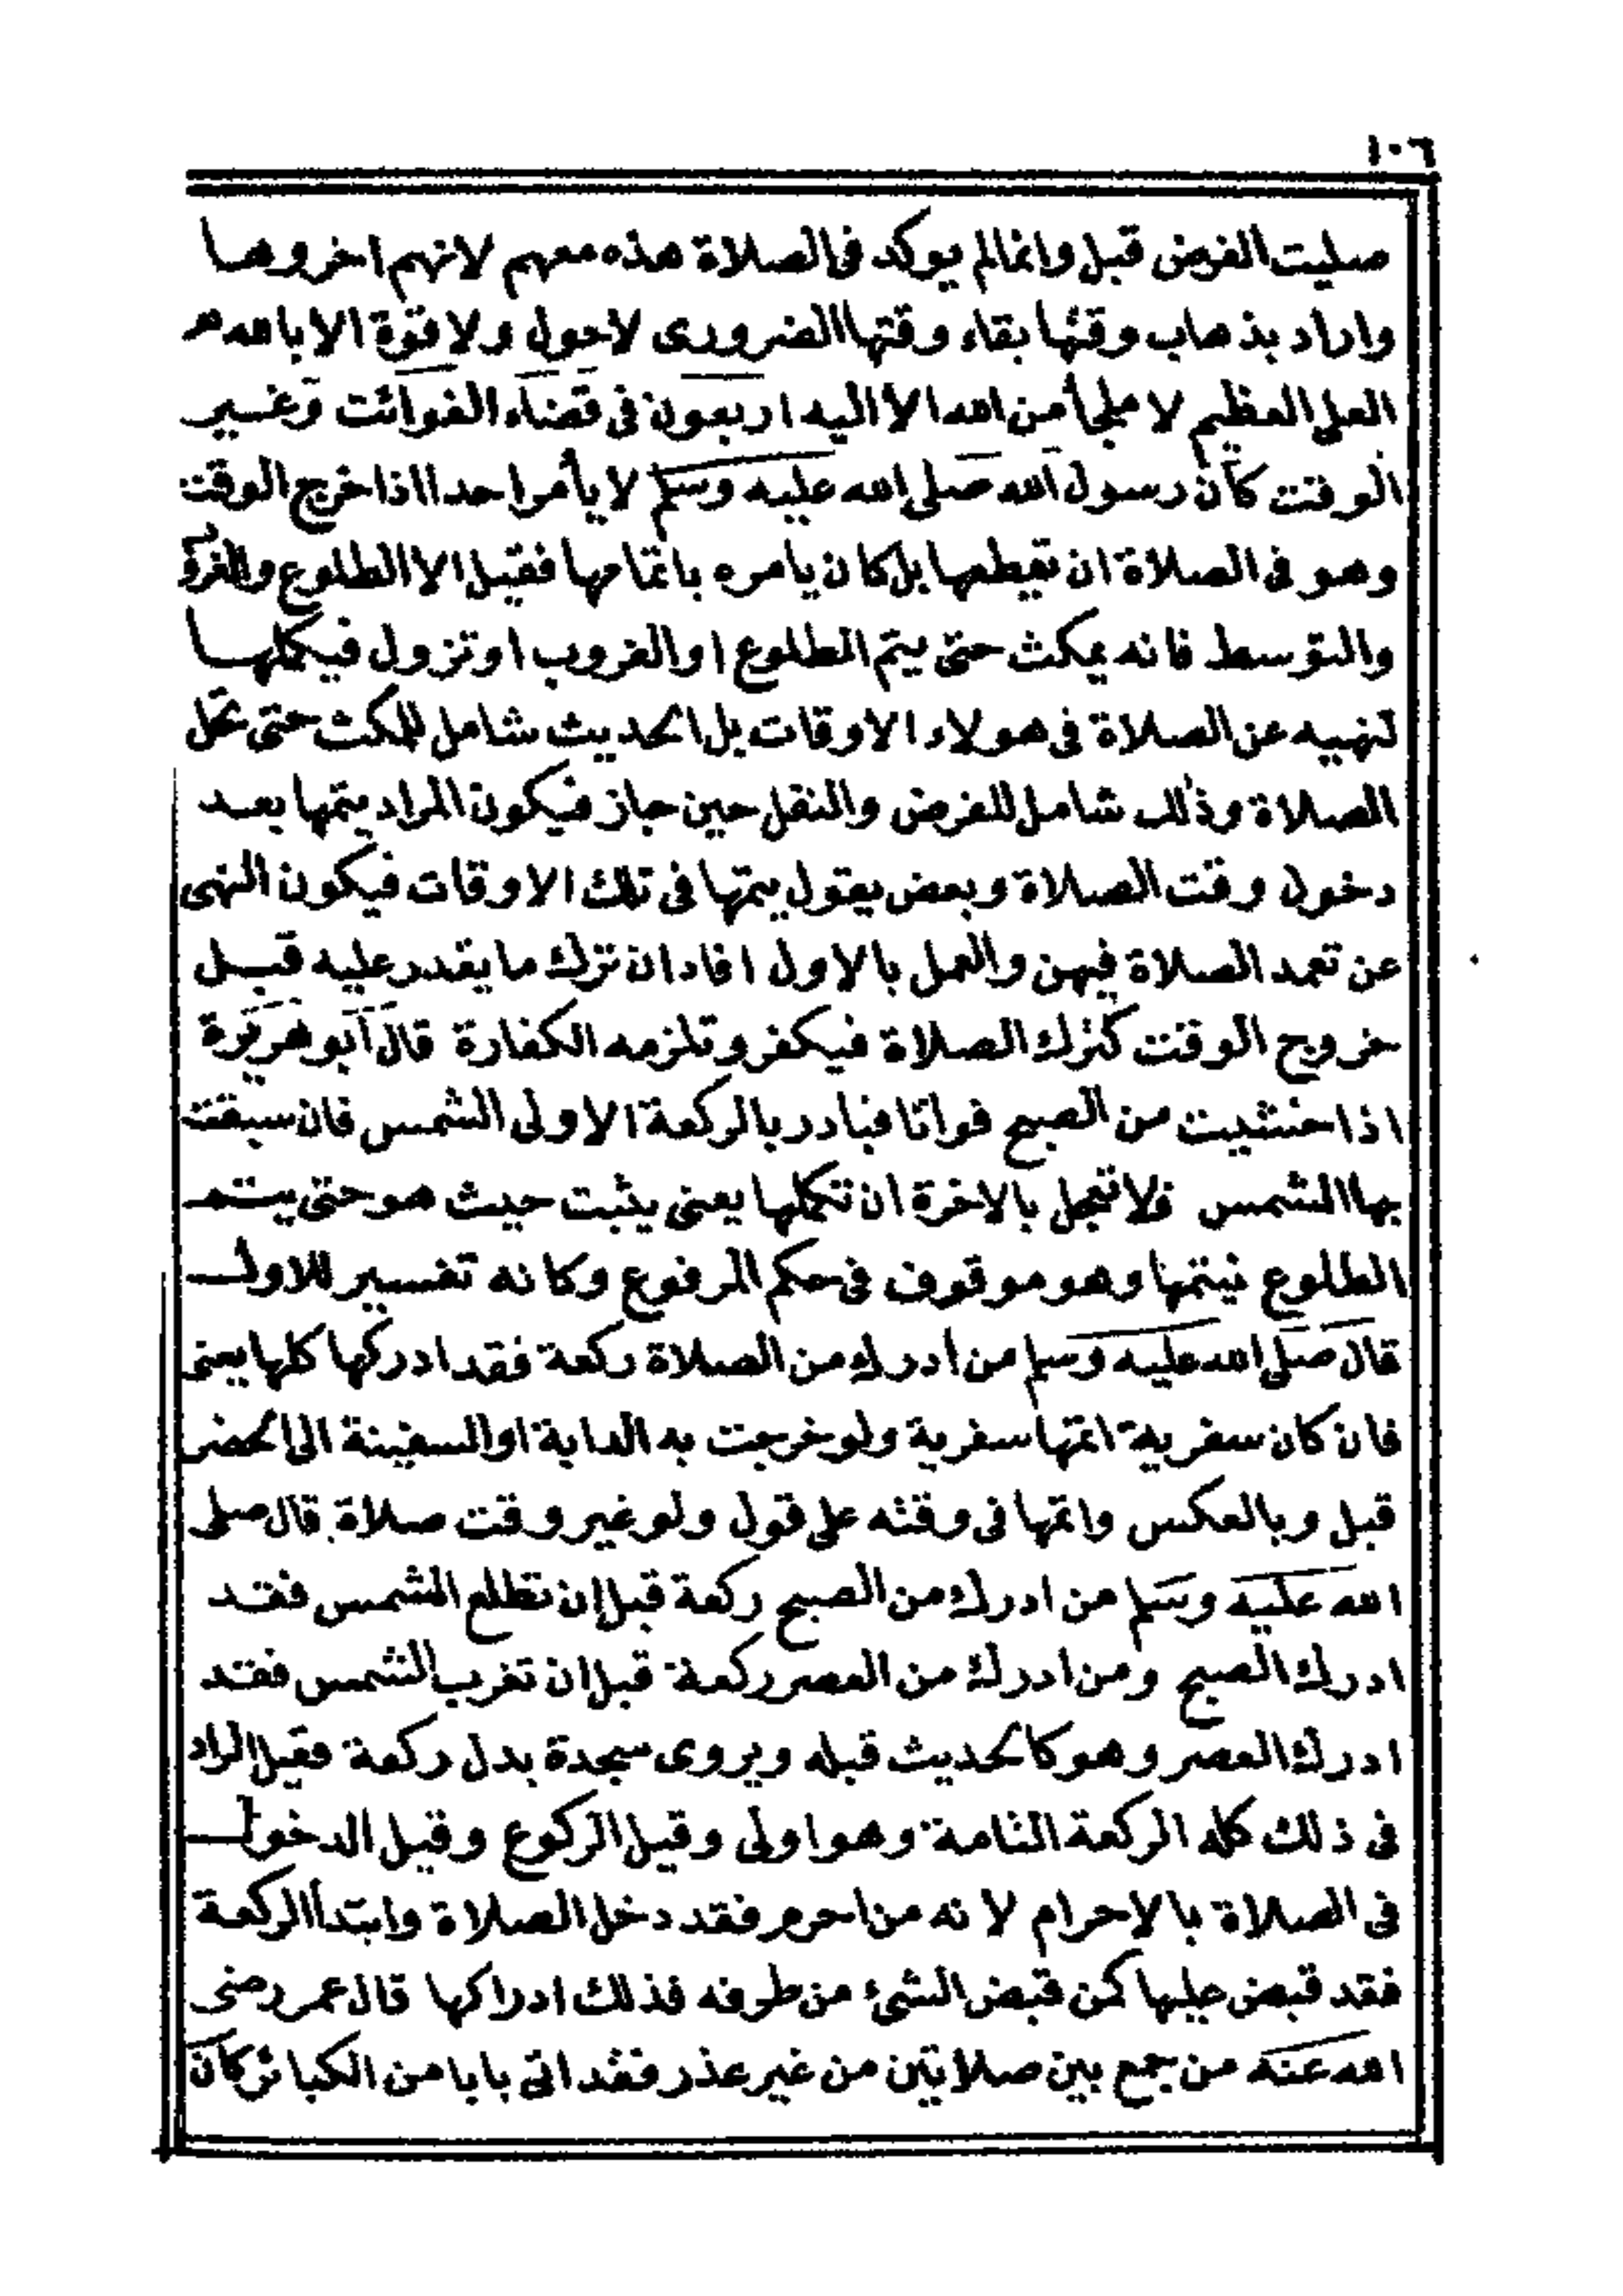 ١٠٦
صليت الفرض قبل وانما لم يوكد فى الصلاة هذه معهم لانهم اخروها
واراد بذهاب وقتها بقاء وقتها الضرورى لاحول ولا قوة الا بالله
العلى العظيم لا ملجأ من الله الا اليه اربعون فى قضاء الفوائت وغير
الوقت كان رسول الله صلى الله عليه وسلم لا يأمر احدا اذا خرج الوقت
وهو فى الصلاة ان تقطعها بل كان يامره باتمامها فقيل الا الطلوع والغروب
والتوسط فانه يمكث حتى يتم الطلوع او الغروب او تزول فيكملها
لنهيه عن الصلاة فى هولاء الاوقات بل الحديث شامل للمكث حتى تحل
الصلاة وذلك شامل للفرض والنفل حين جاز فيكون المراد يتمها بعد
دخول وقت الصلاة وبعض يقول يتمها فى تلك الاوقات فيكون النهى
عن تعمد الصلاة فيهن والعمل بالاول افاد ان ترك ما يقدر عليه قبل
خروج الوقت كترك الصلاة فيكفر وتلزمه الكفارة قال ابو هريرة
اذا خشيت من الصبح فواتا فبادر بالركعة الاولى الشمس فان سبقت
بها الشمس فلا تعجل بالاخرة ان تكملها يعنى يثبت حيث هو حتى يتم
الطلوع فيتمها وهو موقوف فى حكم المرفوع وكانه تفسير للاول
قال صلى الله عليه وسلم من أدرك من الصلاة ركعة فقد ادركها كلها يعنى
فان كان سفرية اتمها سفرية ولو خرجت به الدابة او السفينة الى الحضر
قبل وبالعكس واتمها فى وقته على قول ولو غير وقت صلاة قال صلى
الله عليه وسلم من ادرك من الصبح ركعة قبل ان تطلع الشمس فقد
ادرك الصبح ومن ادرك من العصر ركعة قبل ان تغرب الشمس فقد
ادرك العصر وهو كالحديث قبله ويروى سجدة بدل ركعة فقيل المراد
فى ذلك كله الركعة التامة وهو اولى وقيل الركوع وقيل الدخول
فى الصلاة بالاحرام لانه من احرم فقد دخل الصلاة وابتدأ الركعة
فقد قبض عليها كمن قبض الشئ من طرفه فذلك ادراكها قال عمر رضى
الله عنه من جمع بين صلاتين من غير عذر فقد اتى بابا من الكبائر كان